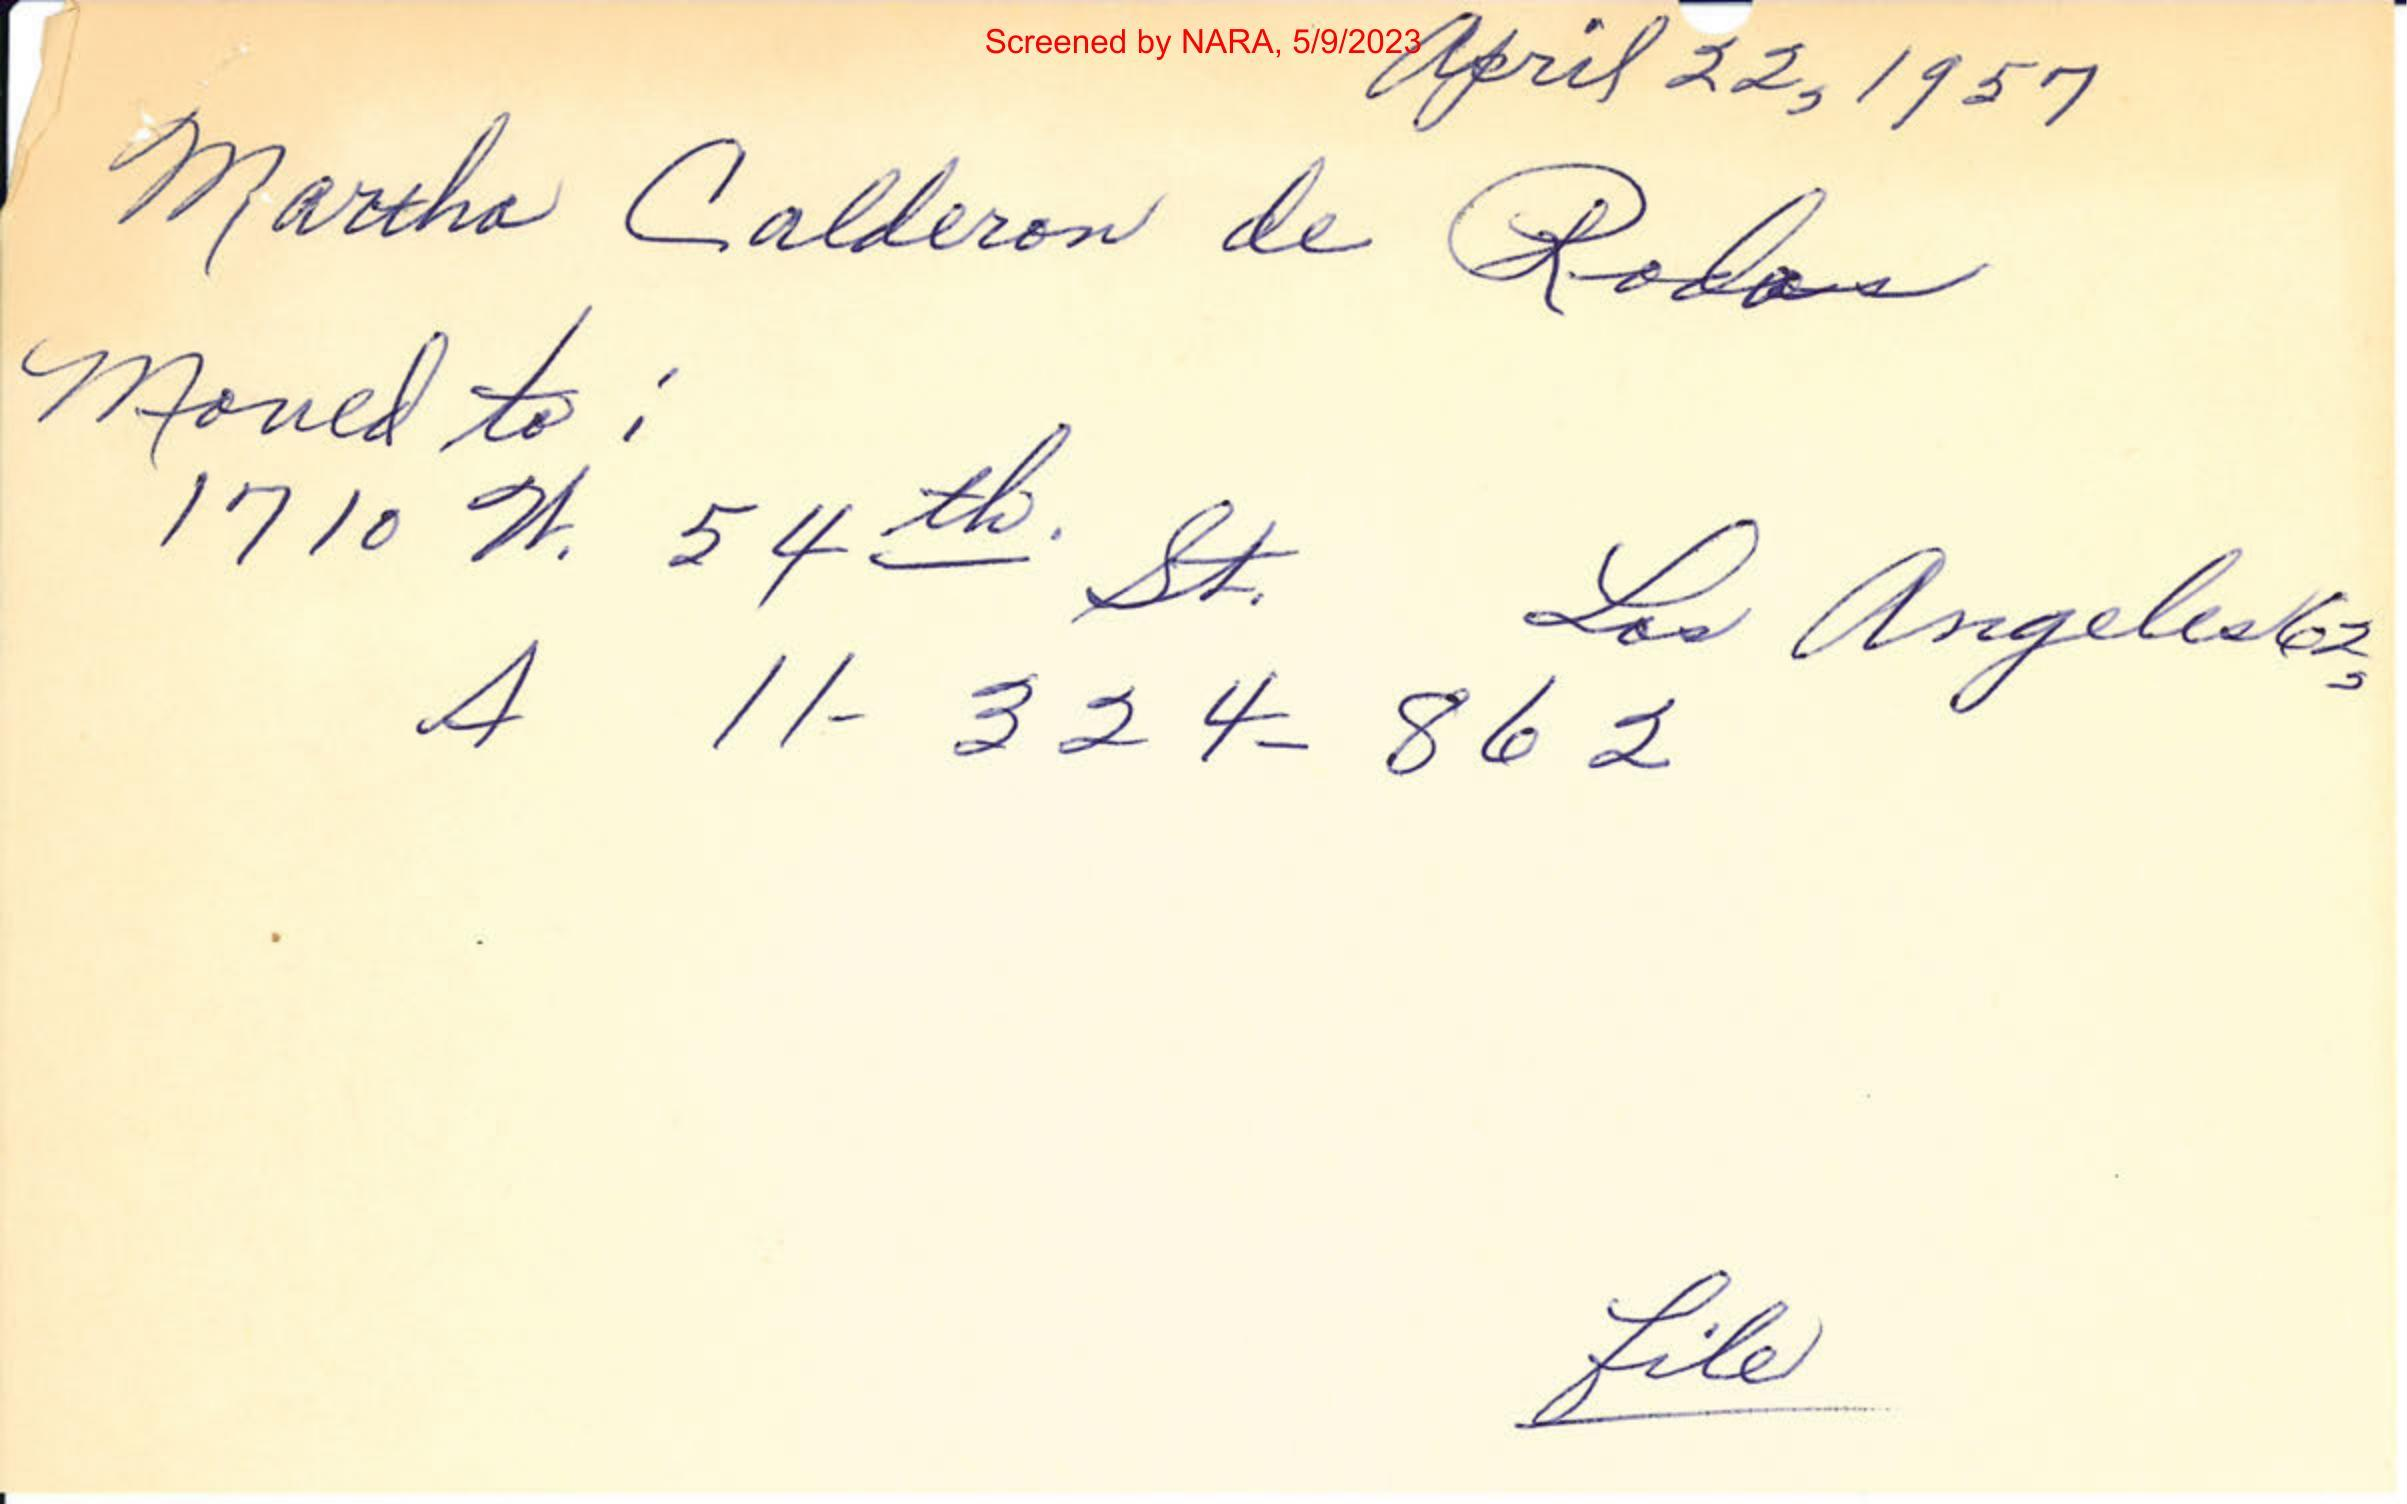 Screened by NARA, 5/9/2023
April 22, 1957
Martha Calderon de Rodas
Moved to :
1710 W. 54th. St. Los Angeles 62,
A 11-324-862
file